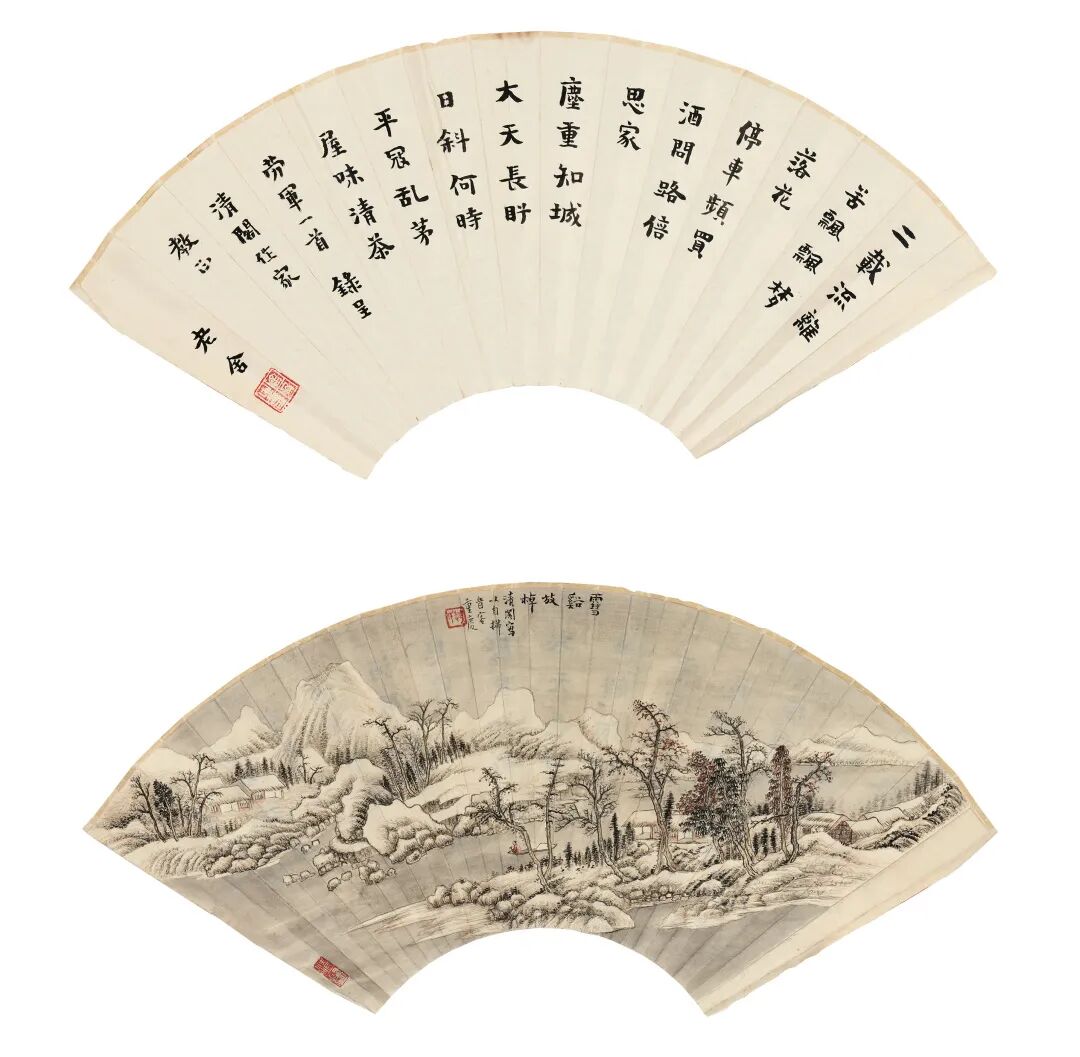 二載流離
苦飄飄梦
落花
停車頻買
酒問路倍
思家
塵重知城
大天長盼
日斜何時
平寇乱茅
屋味清茶
劳軍一首 錄呈
清閣作家
教正
老舍
雪谿放棹
清閣寫